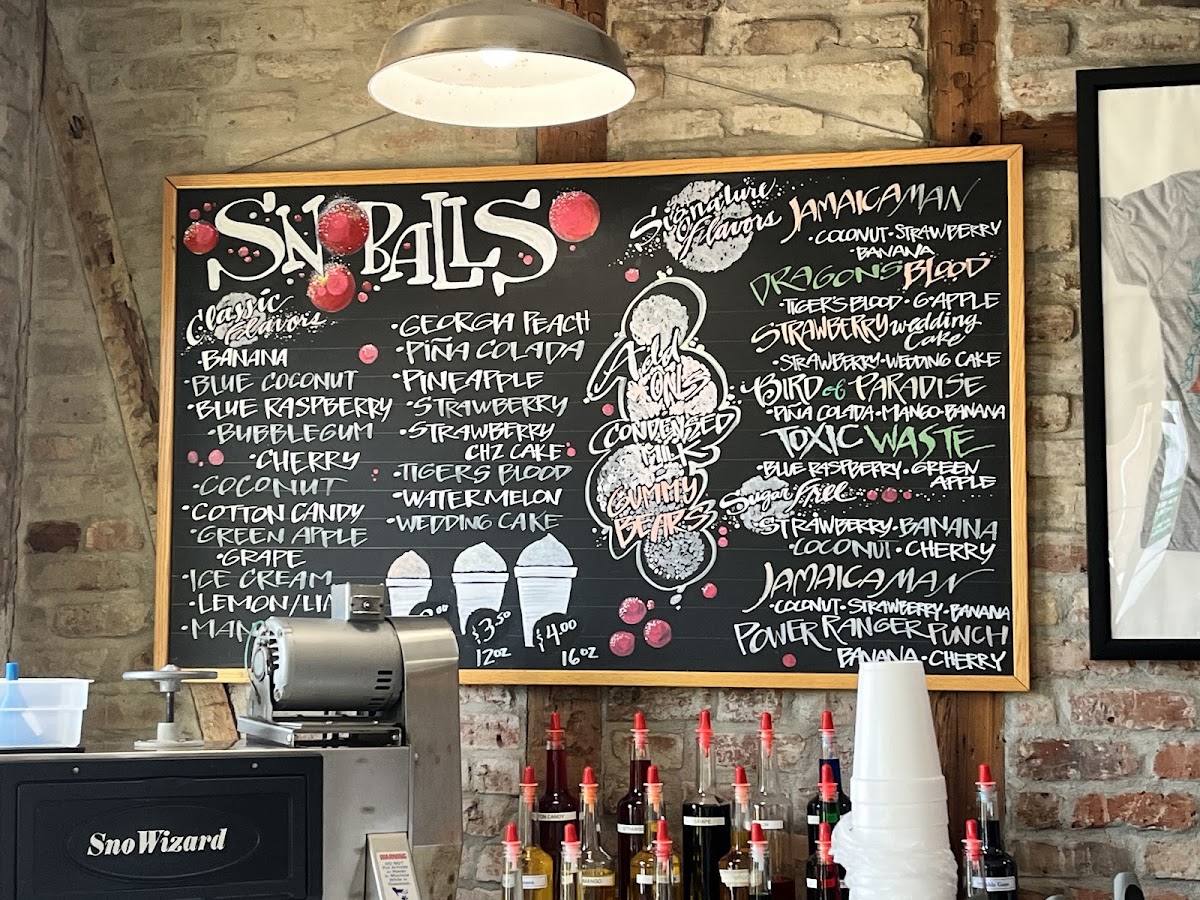 SNOBALLS
Classic
Flavors
BANANA
•BLUE COCONUT
•BLUE RASPBERRY
•BUBBLEGUM
•CHERRY
•COCONUT
•COTTON CANDY
•GREEN APPLE
•GRAPE
•ICE CREAM
•LEMON/LI
•MAN
•GEORGIA PEACH
•PIÑA COLADA
•PINEAPPLE
•STRAWBERRY
•STRAWBERRY
CHZ CAKE
•TIGERS BLOOD
•WATERMELON
•WEDDING CAKE
$3.50
12oz
$4.00
16oz
Add
CONDENSED
MILK
GUMMY
BEARS
Signature
Flavors
JAMAICAMAN
•COCONUT•STRAWBERRY
•BANANA
DRAGONS BLOOD
•TIGER'S BLOOD•G•APPLE
STRAWBERRY wedding
Cake
•STRAWBERRY•WEDDING CAKE
BIRD of PARADISE
•PIÑA COLADA•MANGO•BANANA
TOXIC WASTE
•BLUE RASPBERRY•GREEN
APPLE
Sugar Free
STRAWBERRY•BANANA
COCONUT•CHERRY
JAMAICAMAN
•COCONUT•STRAWBERRY•BANANA
POWER RANGER PUNCH
BANANA•CHERRY
SnoWizard
WARNING
GRAPE